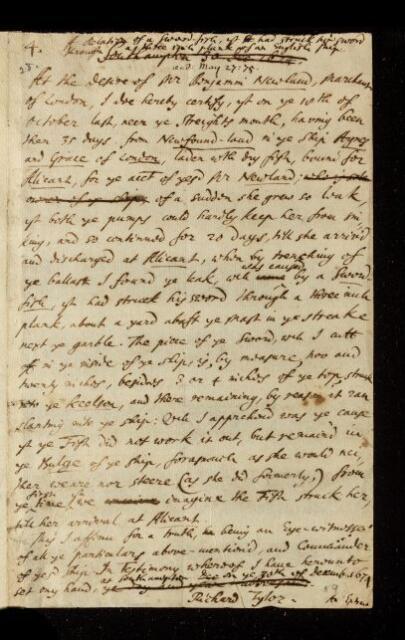 4. A Relation of a Sword-fish, yt had struck his sword
through a three inch plank of an English ship.
Southampton 30
read May 27: 75.
At the desire of Mr Benjamin Newland, Marchant
of London, I doe hereby certify, yt on ye 10th of
October last, neer ye Streights mouth, having been
then 35 days, from Newfound-land in ye Ship
and Grace of London, laden wth dry fish, bound for
Alicant, for ye acct of yesd Mr Newland;
of a sudden she grew so leak
yt both ye pumps could hardly keep her from sin-
king, and so continued for 20 days, till she arriv'd
and discharged at Alicant, when by trenching of
ye ballast I found ye leak, wch was caused by a Sword-
fish, yt had struck his sword through a three inch
plank, about a yard abaft ye mast in ye streake
next ye garble. The piece of ye Sword, wch I cutt
off in ye inside of ye ship, is, by measure, two and
twenty inches, besides 3 or 4 inches of ye top, struck
into ye keelson, and there remaining, by reason it ran
slanting into ye ship: Wch I apprehend was ye cause
yt ye Fish did not work it out, but remain'd in
ye Bulge of ye ship, forasmuch as she would nei-
ther weare nor steere (as she did formerly,) from
ye first time I doe imagine the Fish struck her,
till her arrival at Alicant.
This I affirme for a truth, as being an Eye-witnesse
of all ye particulars above-mention'd, and Commander
of yesd ship. In Testimony whereof I have hereunto
set my hand, at Southampton Dec on ye 30th of Decemb. 1674
Richard Tylor.